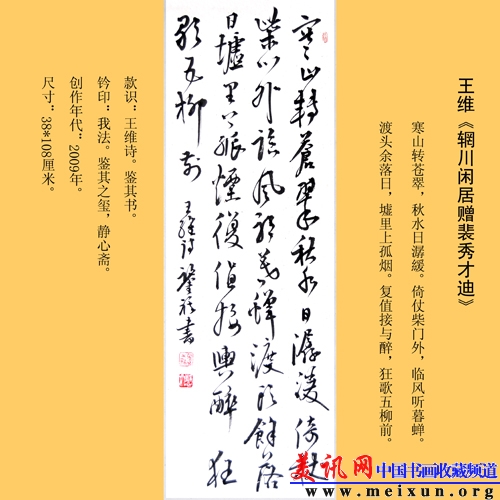 王维《辋川闲居赠裴秀才迪》
寒山转苍翠，秋水日潺缓。倚仗柴门外，临风听暮蝉。
渡头余落日，墟里上孤烟。复值接与醉，狂歌五柳前。
寒山轉蒼翠秋水日潺湲倚杖
柴門外臨風聽暮蟬渡頭餘落
日墟里上孤煙復值接輿醉狂
歌五柳前
王維詩鑒其書
款识：王维诗。鉴其书。
钤印：我法。鉴其之玺，静心斋。
创作年代：2009年。
尺寸：38*108厘米。
美讯网 中国书画收藏频道
www.meixun.org